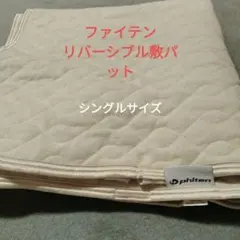 ファイテン
リバーシブル敷パ
ット
シングルサイズ
phiten